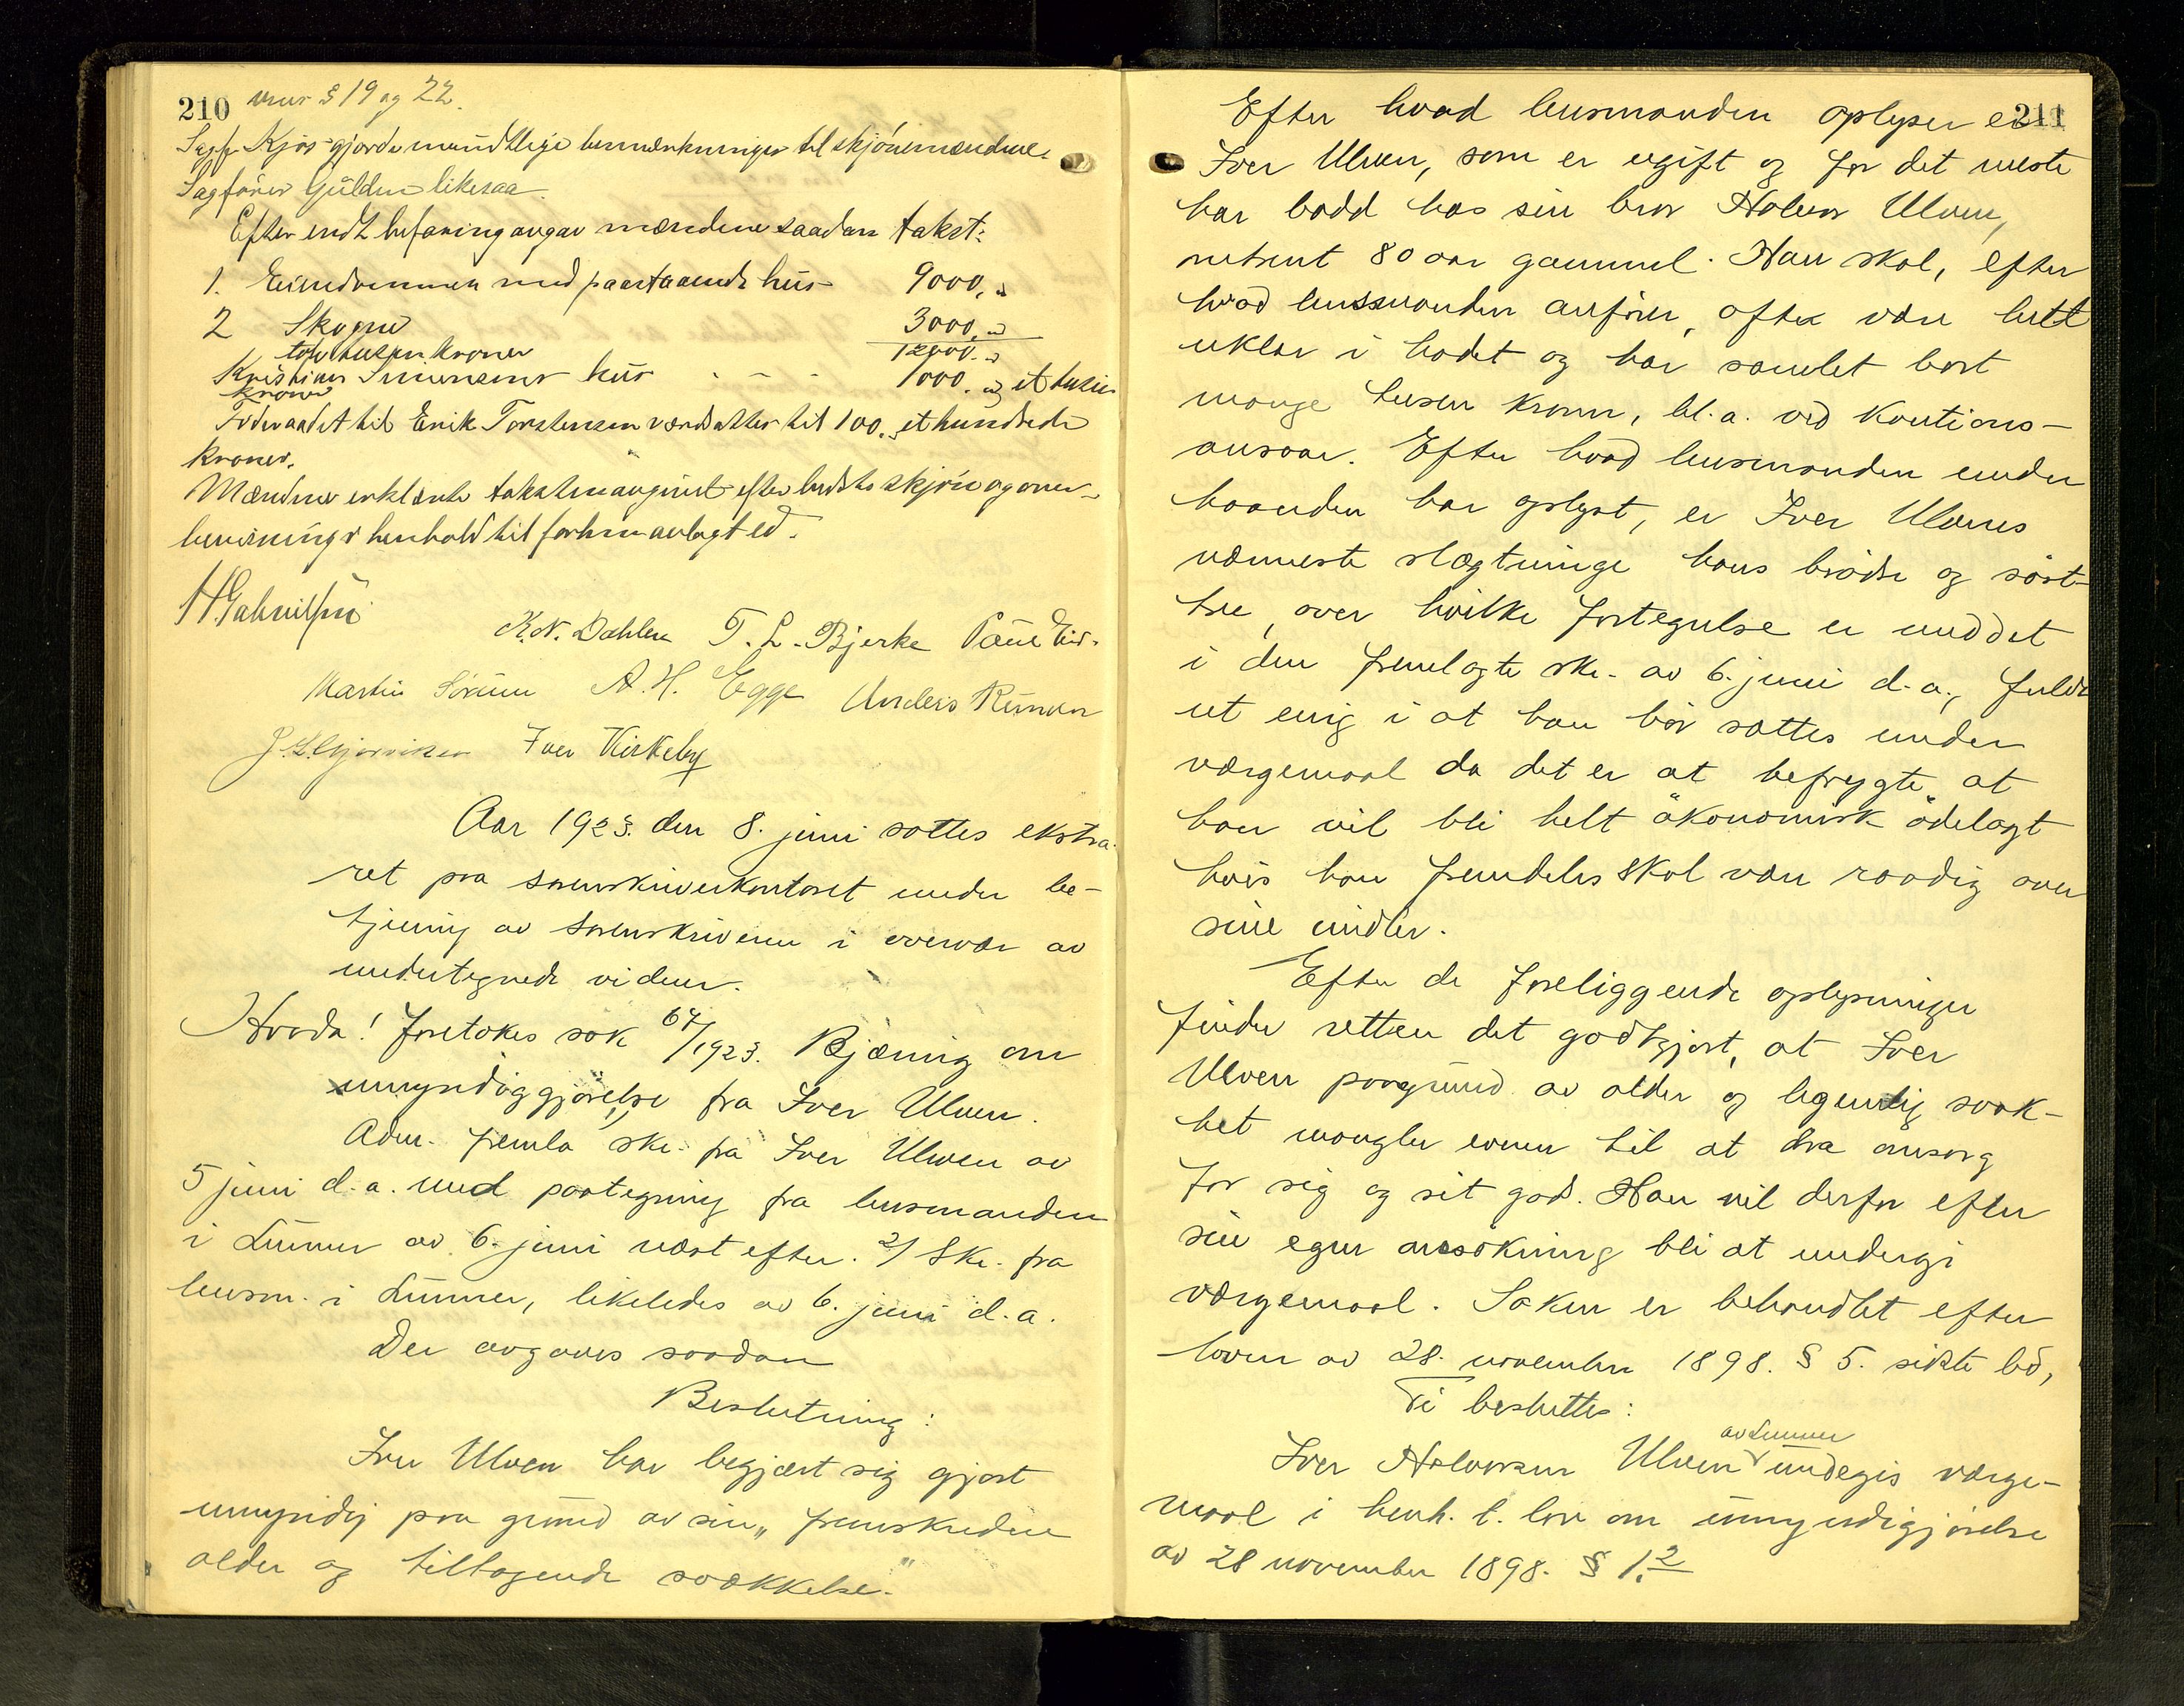 210 mnr § 19 og 22.
Sagf. Kjøs gjorde mundtlige bemærkninger til skjönsmændene.
Sagförer Gulden likesaa.
Efter endt befaring avgav mændene saadan takst:
1. Eiendommen med paastaaende hus 9000,-
2 Skogen 3000,-
tolv tusen kroner 12000.-
Kristian Simensens hus - - - 1000.- et tusen
kroner
Föderaadet til Erik Torstensen værdsættes til 100.- et hundrede
kroner.
Mændene erklærte taksten avgivet efter bedste skjön og over-
bevisning i henhold til forhen avlagt ed.
H Gabrielsen
K.N. Dahlen T. L. Bjerke Paul
Martin Sörum A. H. Egge Anders Rúnden
Iver Kirkeby
Aar 1923. den 8. juni sattes ekstra-
ret paa sorenskriverkontoret under be-
tjening av sorenskriveren i overvær av
undertegnede vidner.
Hvorda! foretokes sak 64/1923. Bjæring om
umyndiggjörelse fra Iver Ulven.
Adm. fremla skr. fra Iver Ulven av
5 juni d.a. med paategning fra lensmanden
i Lunner av 6. juni næst efter. 2/ Skr. fra
lensm. i Lunner, likeledes av 6. juni d.a.
Der avgaves saadan
Beslutning:
Iver Ulven har begjært sig gjort
umyndig paa grund av sin „fremskredne
alder og tiltagende svækkelse."
211
Efter hvad lensmanden oplyser er
Iver Ulven, som er ugift og for det meste
har bodd hos sin bror Halvor Ulven,
netrent 80 aar gammel. Han skal, efter
hvad lensmanden anförer, ofte være litt
uklar i hodet og har somlet bort
mange tusen kroner, bl.a. ved kautions-
ansvar. Efter hvad lensmanden under
haanden har oplyst, er Iver Ulvens
nærmeste slægtninge hans brödre og söst-
tre, over hvilke fortegnelse er meddelt
i den fremlagte skr. av 6. juni d.a., fuldt
ut enig i at han bör sættes under
værgemaal da det er at befrygte at
han vil bli helt ökonomisk ödelagt
hvis han fremdeles skal være raadig over
sine midler.
Efter de foreliggende oplysninger
finder retten det godtgjort, at Iver
Ulven paagrund av alder og legemlig svak-
het mangler evnen til at dra omsorg
for sig og sit gods. Han vil derfor efter
sin egen ansökning bli at undergi
værgemaal. Saken er behandlet efter
loven av 28. november 1898. § 5. sidste led,
Ti besluttes:
av Lunner
Iver Halvorsen Ulven undergis værge-
maal i henh. t. lov om umyndigjörelse
av 28 november 1898. § 1.2